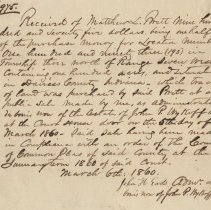 975.
Received of Matthew Pratt Nine hun-
dred and Seventy five dollars being one half
of the purchase money for Location Number
One hundred and ninety three (193) in
Township four north of Range Seven West
containing one hundred acres, and situated
in County, which
of land was purchased by said Pratt at a
public sale made by me, as administrator
de bonis non of the Estate of John P. Wyckoff at
the Court House door on the 5th day of
March 1860. Said Sale having been made
in Compliance with an order of the Court
of Common Pleas of said County at the
January term 1860 of said Court.
March 6th, 1860.
John H. Adm. de
bonis non of John P. Wyckoff